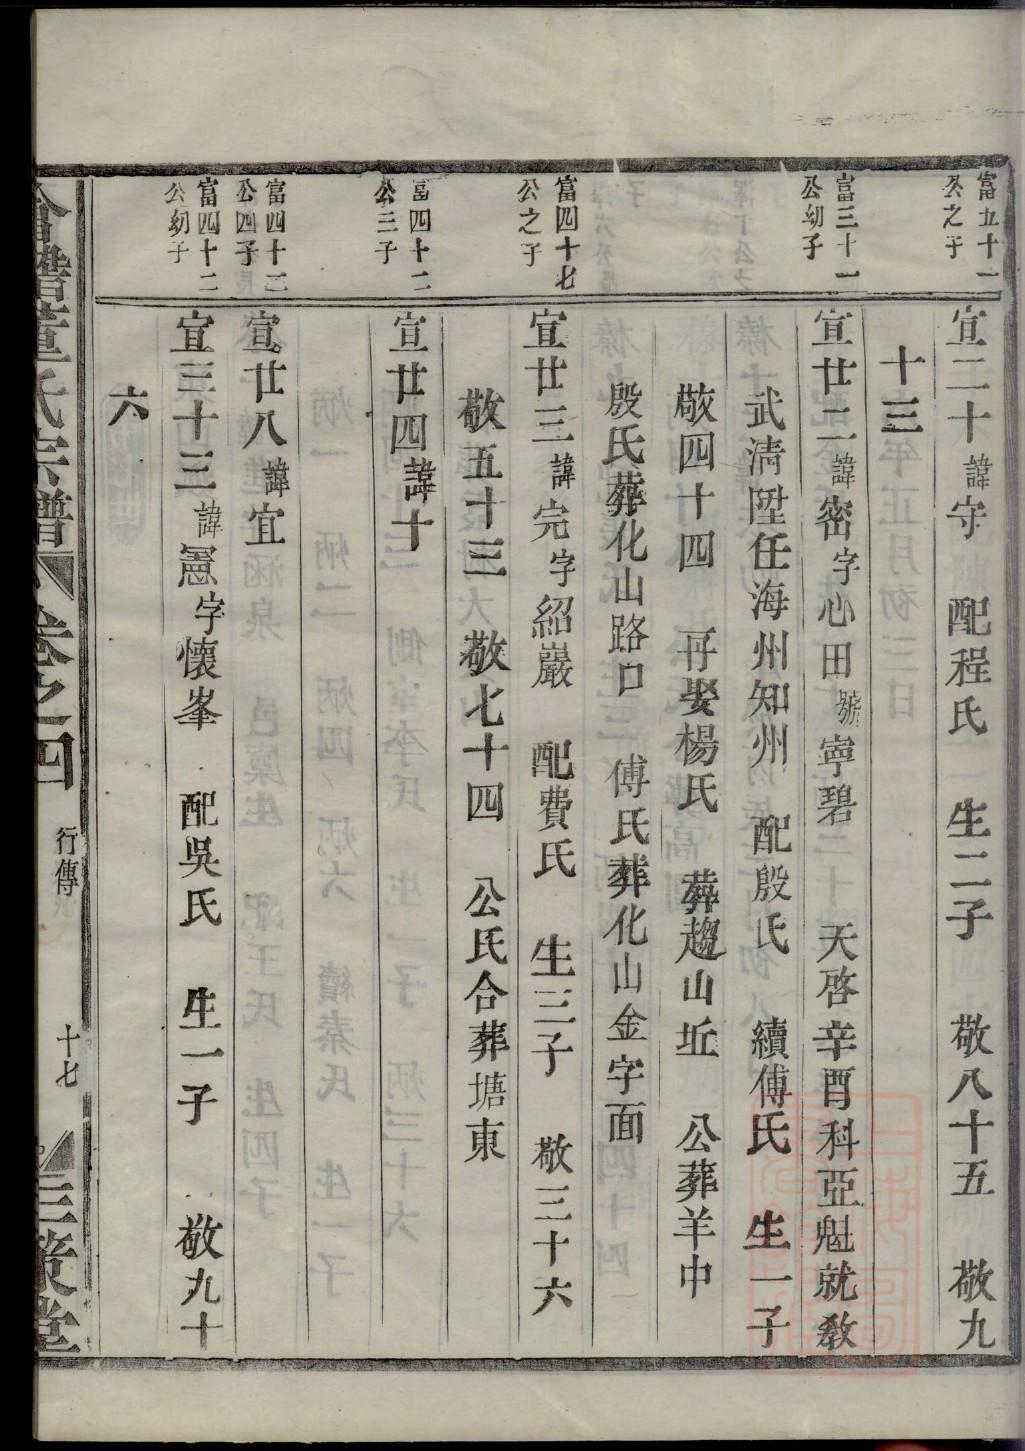 富五十一
公之子
宣二十諱守 配程氏 生二子 敬八十五 敬九
十三
富三十一
公幼子
宣廿二諱密字心田號寧碧 天啓辛酉科亞魁就教
武清陞任海州知州 配殷氏 續傅氏 生一子
敬四十四 再娶楊氏 葬趨山坵 公葬羊中
殷氏葬化山路口 傅氏葬化山金字面
富四十七
公之子
宣廿三諱完字紹巖 配費氏 生三子 敬三十六
敬五十三 敬七十四 公氏合葬塘東
富四十二
公三子
宣廿四諱十
富四十二
公四子
宣廿八諱宜
富四十二
公幼子
宣三十三諱憲字懷峯 配吳氏 生一子 敬九十
六
董氏宗譜 卷之四 行傳 十七 三策堂